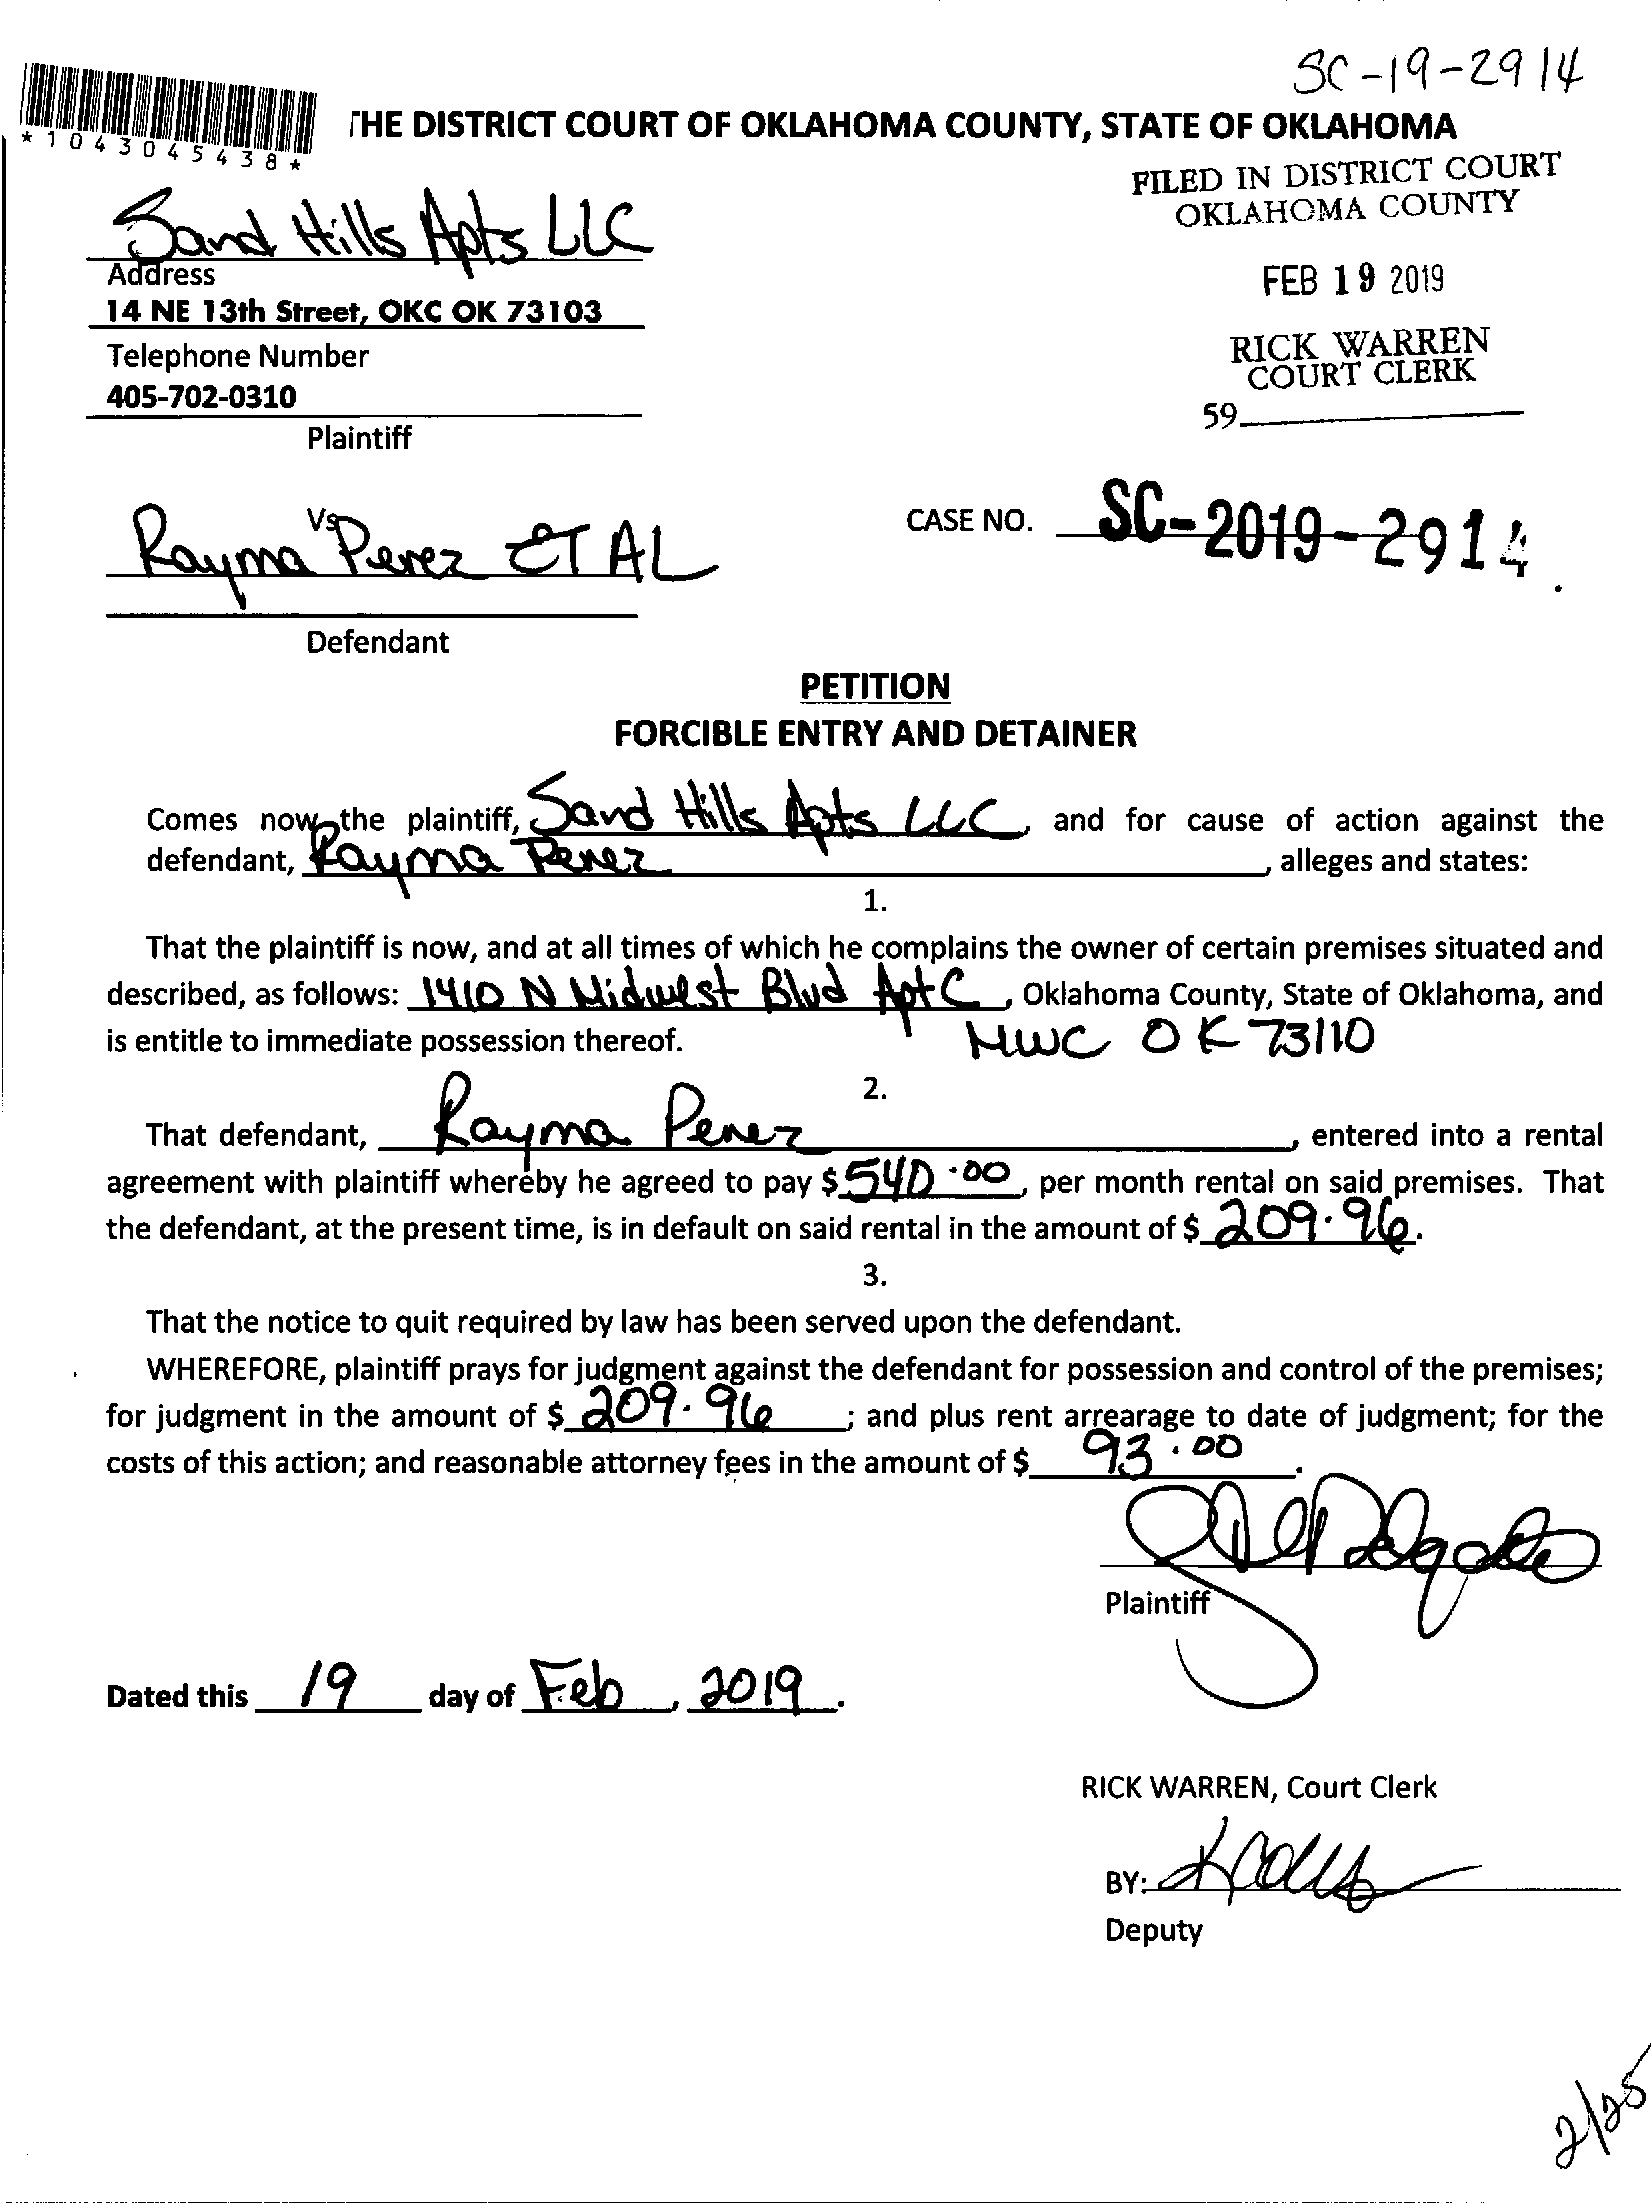 SC-19-2914
*1043045438*
THE DISTRICT COURT OF OKLAHOMA COUNTY, STATE OF OKLAHOMA
FILED IN DISTRICT COURT
OKLAHOMA COUNTY
Sand Hills Apts LLC
Address
FEB 19 2019
14 NE 13th Street, OKC OK 73103
Telephone Number
RICK WARREN
COURT CLERK
405-702-0310
59
Plaintiff
Vs
Rayma Perez ET AL
CASE NO. SC-2019-2914
Defendant
PETITION
FORCIBLE ENTRY AND DETAINER
Comes now the plaintiff, Sand Hills Apts LLC, and for cause of action against the
defendant, Rayma Perez, alleges and states:
1.
That the plaintiff is now, and at all times of which he complains the owner of certain premises situated and
described, as follows: 1410 N Midwest Blvd Apt C, Oklahoma County, State of Oklahoma, and
is entitle to immediate possession thereof. MWC OK 73110
2.
That defendant, Rayma Perez, entered into a rental
agreement with plaintiff whereby he agreed to pay $540.00, per month rental on said premises. That
the defendant, at the present time, is in default on said rental in the amount of $209.96.
3.
That the notice to quit required by law has been served upon the defendant.
WHEREFORE, plaintiff prays for judgment against the defendant for possession and control of the premises;
for judgment in the amount of $209.96; and plus rent arrearage to date of judgment; for the
costs of this action; and reasonable attorney fees in the amount of $93.00.
Plaintiff
Dated this 19 day of Feb, 2019.
RICK WARREN, Court Clerk
BY:
Deputy
2/25